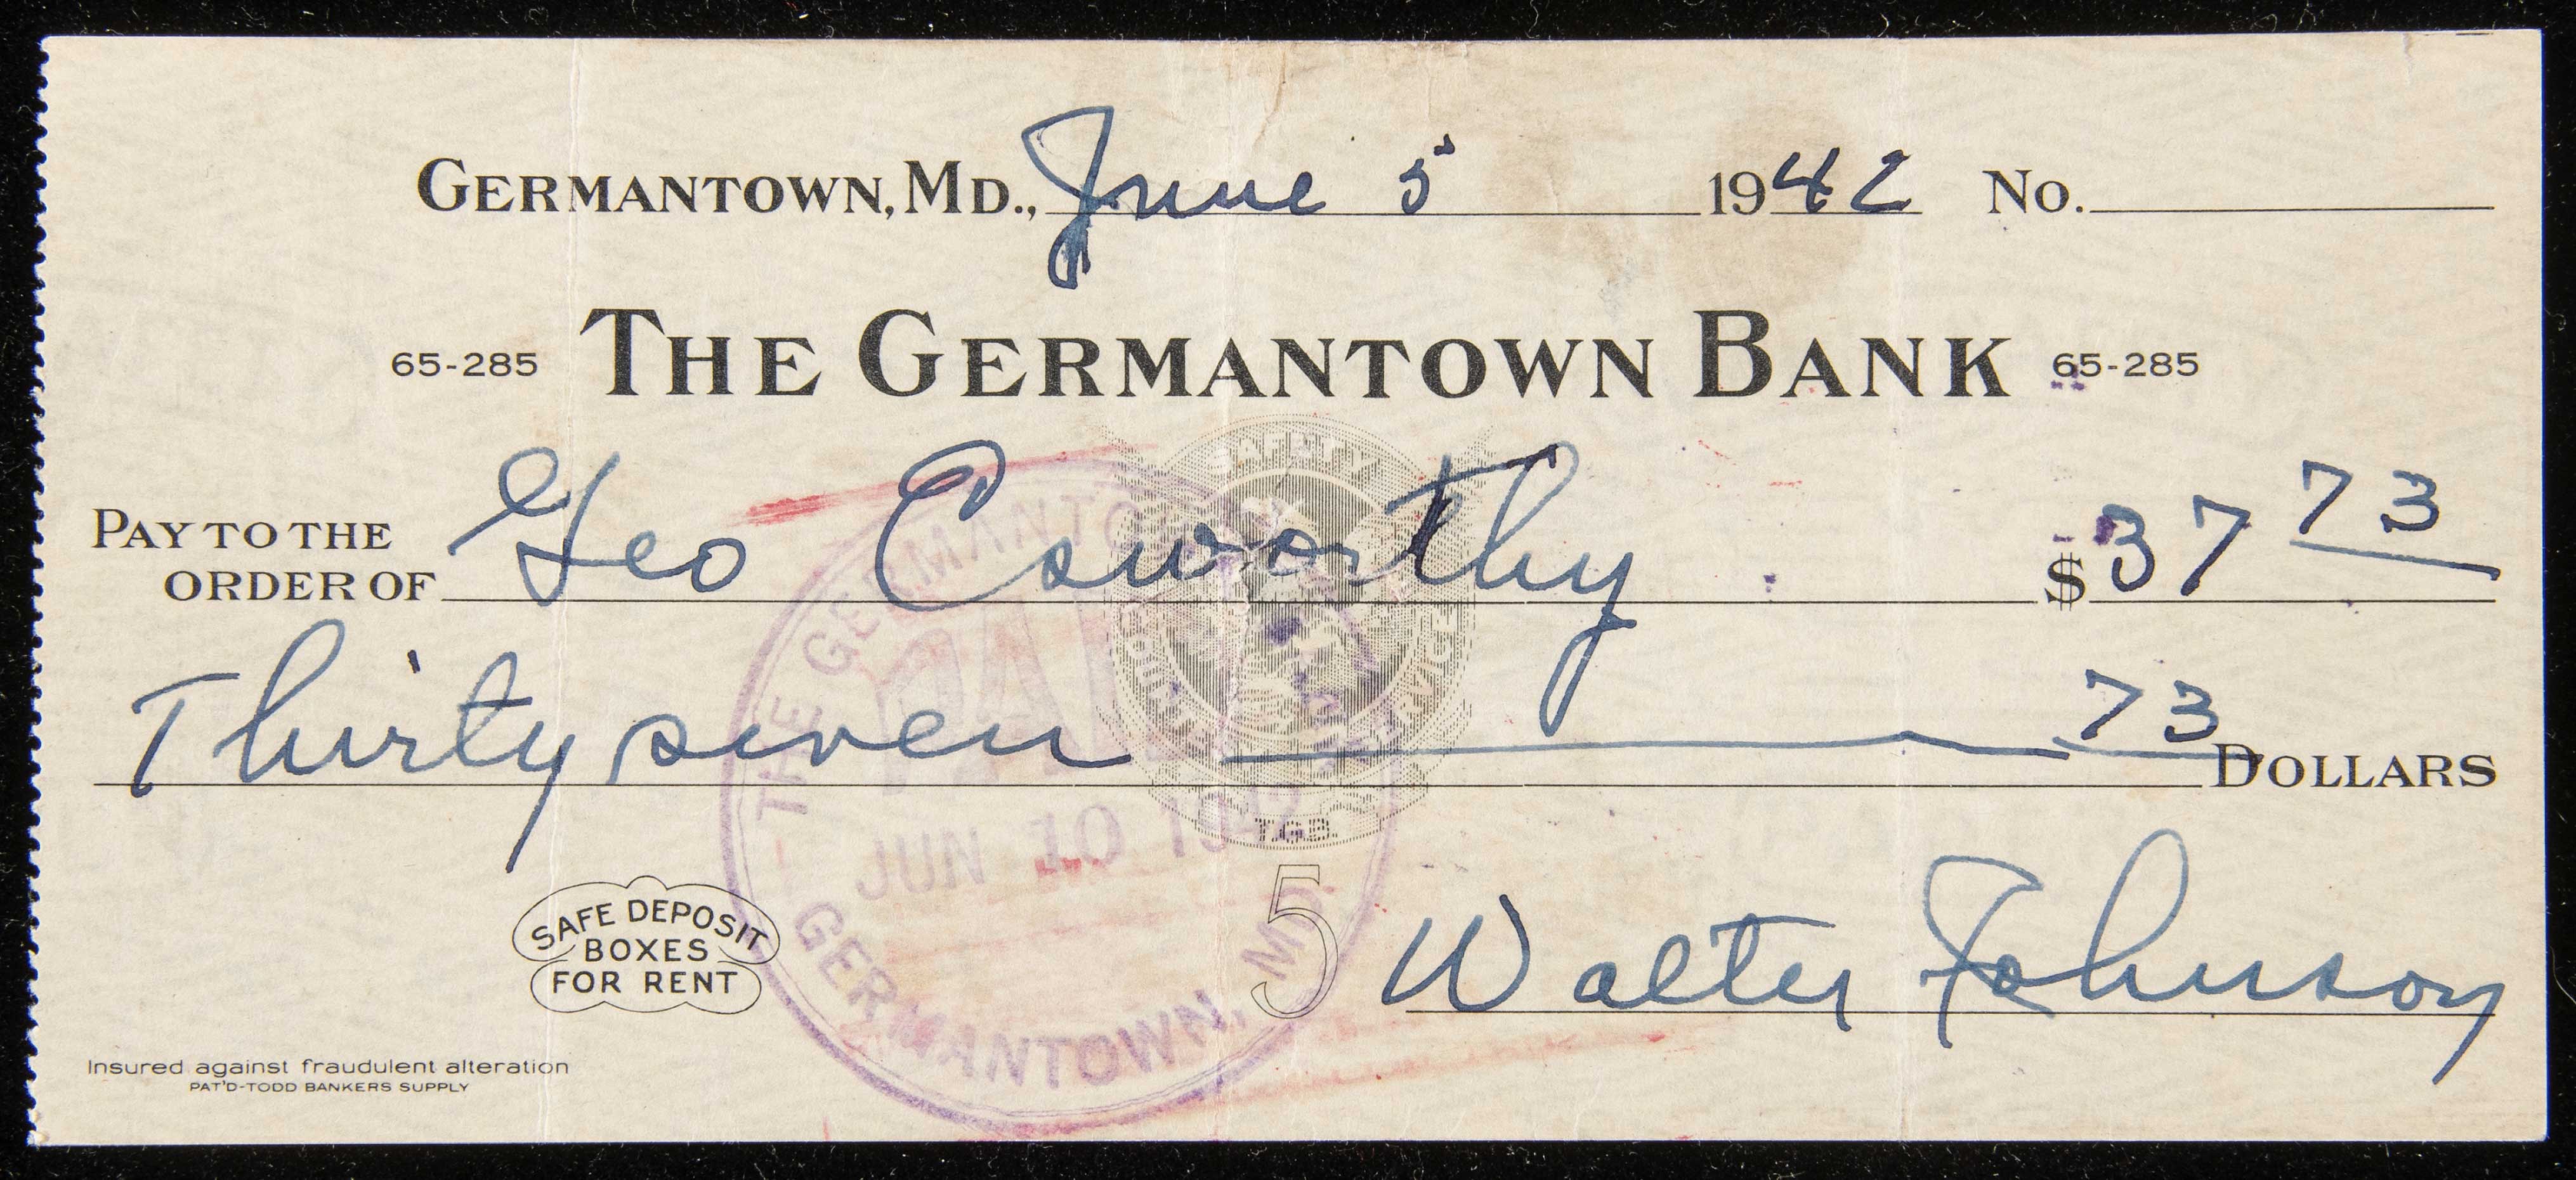 GERMANTOWN, MD., June 5 1942 No.
65-285 THE GERMANTOWN BANK 65-285
PAY TO THE ORDER OF Geo Esworthy $37 73
Thirty seven 73 DOLLARS
SAFETY
SERVICE
T.G.B.
THE GERMANTOWN
PAID
JUN 10 1942
GERMANTOWN, MD.
SAFE DEPOSIT
BOXES
FOR RENT
5 Walter Johnson
Insured against fraudulent alteration
PAT'D-TODD BANKERS SUPPLY